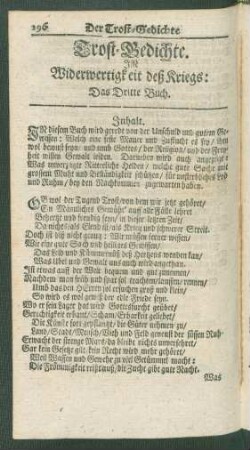 196 Der Trost-Gedichte
Trost-Gedichte.
IN
Widerwertigkeit deß Kriegs:
Das Dritte Buch.
Inhalt.
IN diesem Buch wird geredt von der Unschuld und gutem Ge-
wissen: Welch eine feste Mauer und Zuflucht es sey/
wol bewust seyn: und umb Gottes/ der Religion/ und der Frey-
heit willen Gewalt leiden. Darneben wird auch angezeigt:
Was unverzagte Ritterliche Helden/ welche gute Sache mit
grossem Muht und Beständigkeit schützen/ für unsterbliches Lob
und Ruhm/ bey den Nachkommen zugewarten haben.
OB wol der Tugend Trost/von dem wir jetzt gehöret/
Ein Männliches Gemüht/ auff alle Fälle lehret
Behertzt und freudig seyn/ in dieser letzten Zeit/
Da nichts als Elend ist/ als Krieg und schwerer Streit/
Doch ist diß nicht genug: Wir müssen ferner wissen/
Wie eine gute Sach und heiliges Gewissen/
Das Feld und Kummernüß deß Hertzens wenden kan/
Was übel und Gewalt uns auch wird angethan.
Ist etwas auff der Welt bequem und gut zunennen/
Nachdem man früh und spat sol trachten/ lauffen/ rennen/
Und das den HErren sol ersuchen groß und klein/
So wird es wol gewiß der edle Friede seyn.
Wo er sein Lager hat wird Gottesfurcht geübet/
Gerechtigkeit erkant/ Scham/ Erbarkeit geliebet/
Die Künste fort gepflantzt/ die Güter nehmen zu/
Land/ Stadt/ Mensch/ Vieh und Feld geneust der süssen Ruh:
Erwacht der strenge Mars/ da bleibt nichts unversehret/
Gar kein Gesetze gilt/ kein Recht wird mehr gehöret/
Weil Waffen und Gewehr zu viel Getümmel macht:
Die Frömmigkeit reißt auß/ die Zucht gibt gute Nacht.
Was